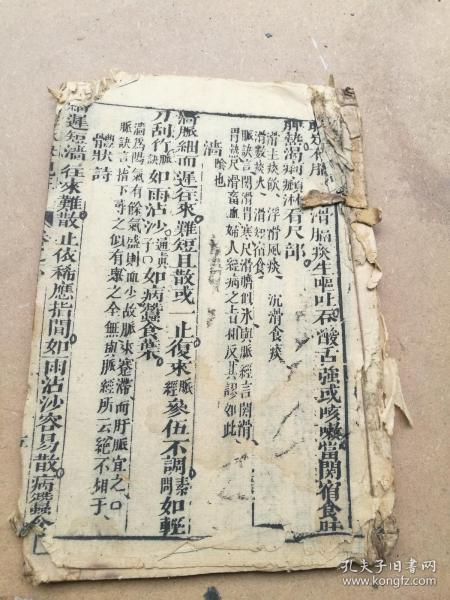 滑膈痰生嘔吐吞酸舌強或咳嗽當関宿食肝
脾熱渴痢㿗淋看尺部
滑主痰飲、浮滑風痰、沉滑食痰
滑數痰火、滑短宿食
脈訣言関滑胃寒尺滑臍似氷與脈經言関滑
胃熱尺滑畜血婦人經病之旨相反其謬如此
濇 陰也
濇脈細而遲往來難短且散或一止復來脈經參伍不調素問如輕
刀刮竹脈訣如雨沾沙通真子如病蠶食葉
濇為陽氣有餘氣盛則血少故脈來蹇滯而肺宜之○
脈訣言指下尋之似有舉之全無與脈經所云絕不相干
體狀詩
細遲短濇往來難散止依稀應指間如雨沾沙容易散病蠶食
孔夫子旧书网
www.kongfz.com